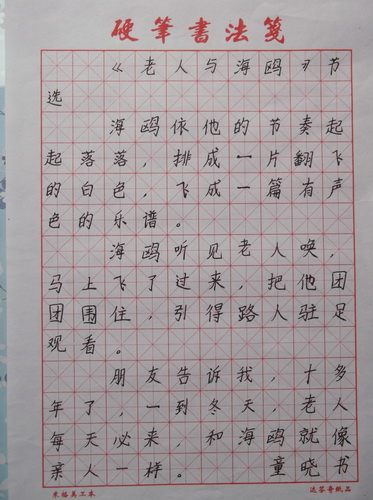 硬筆書法箋
《老人与海鸥》节
选
海鸥依他的节奏起
起落落，排成一片翻飞
的白色，飞成一篇有声
色的乐谱。
海鸥听见老人唤，
马上飞了过来，把他团
团围住，引得路人驻足
观看。
朋友告诉我，十多
年了，一到冬天，老人
每天必来，和海鸥就像
亲人一样。童晓书
米格美工本 达芬奇纸品